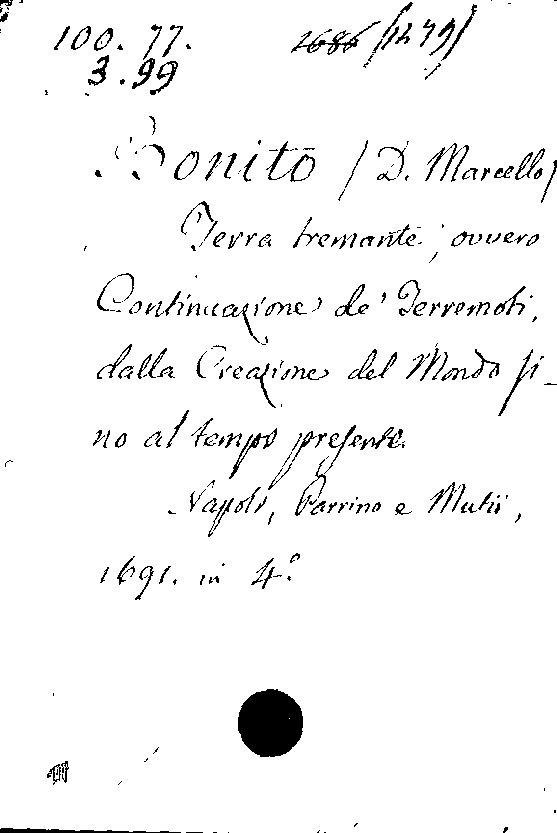 100. 77. 1686 (1279)
3.99
Bonito (D. Marcello)
Terra tremante, ovvero
Continuazione de' Terremoti,
dalla Creazione del Mondo si-
no al tempo presente.
Napoli, Parrino e Mutii,
1691. in 4.º